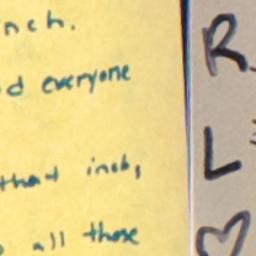 nch.
d everyone
that inch,
all those
R
L